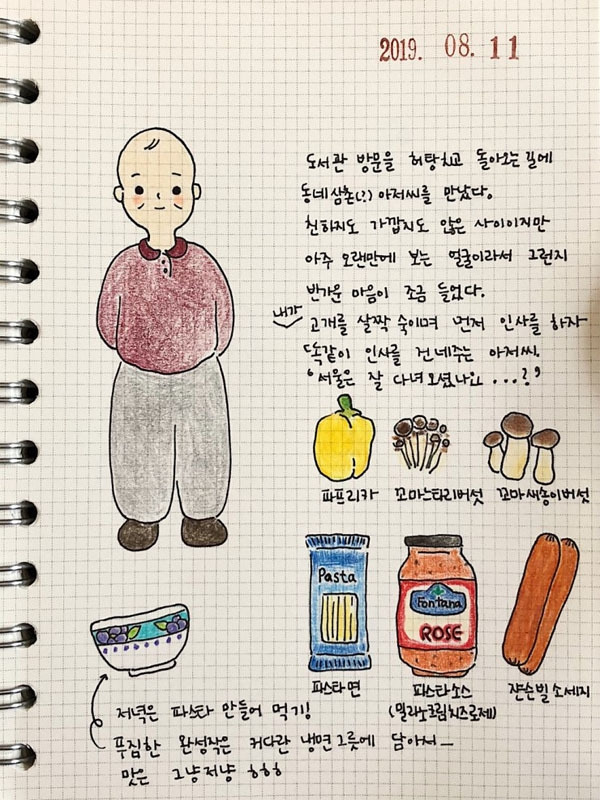 2019. 08. 11
도서관 방문을 허탕치고 돌아오는 길에
동네 삼촌(?) 아저씨를 만났다.
친하지도 가깝지도 않은 사이이지만
아주 오랜만에 보는 얼굴이라서 그런지
반가운 마음이 조금 들었다.
내가
고개를 살짝 숙이며 먼저 인사를 하자
똑같이 인사를 건네주는 아저씨.
'서울은 잘 다녀오셨나요...?'
파프리카 꼬마느타리버섯 꼬마새송이버섯
Pasta
Fontana
ROSE
파스타면 파스타소스 쟌슨빌 소세지
(밀라노크림치즈로제)
저녁은 파스타 만들어 먹기!
푸짐한 완성작은 커다란 냉면그릇에 담아서_
맛은 그냥저냥 ㅎㅎㅎ